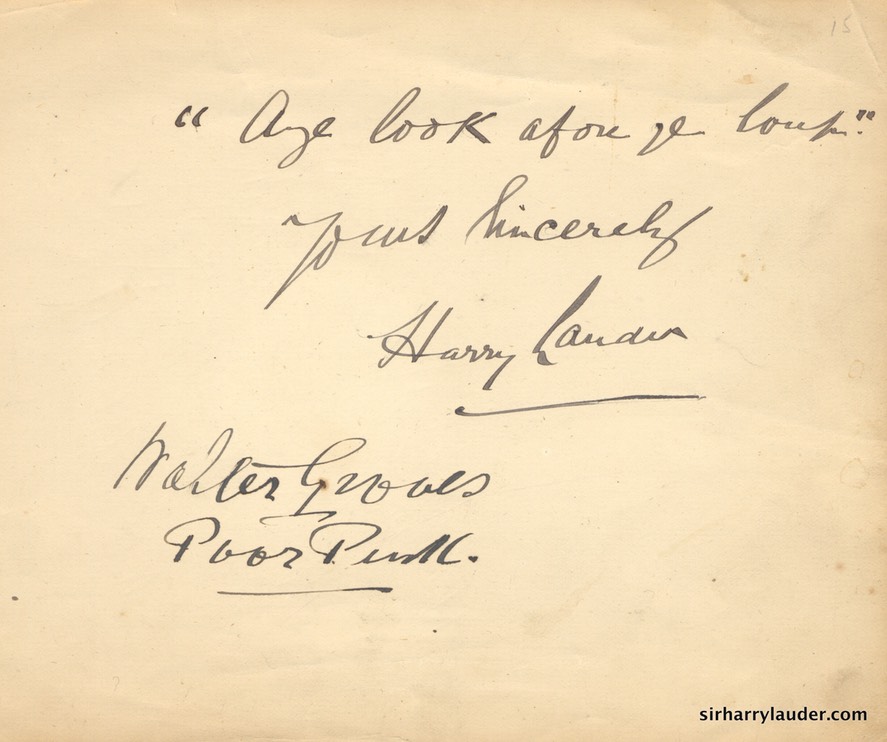 15
“ Aye look afore ye loup."
Yours Sincerely
Harry Lauder
Walter Groves
Poor
sirharrylauder.com